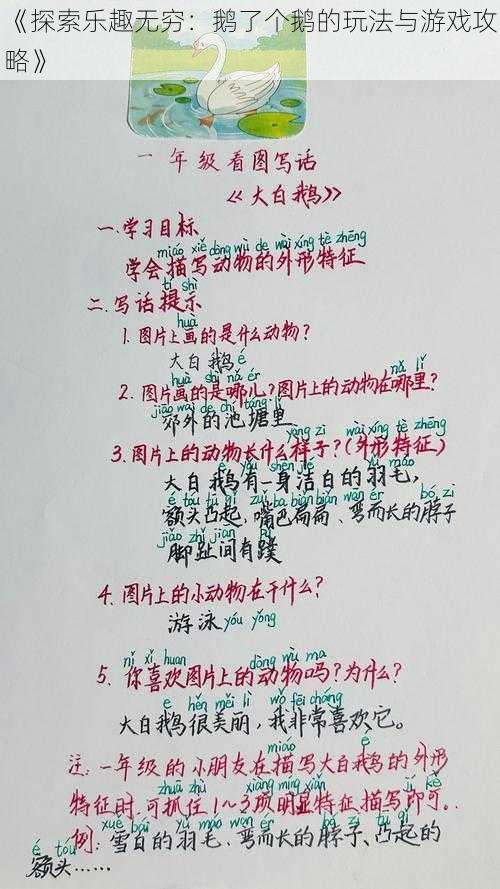 《探索乐趣无穷：鹅了个鹅的玩法与游戏攻
略》
一年级看图写话
《大白鹅》
一.学习目标
miáo xiě dòng wù de wài xíng tè zhēng
学会描写动物的外形特征
tí shì
二.写话提示
huà
1.图片上画的是什么动物?
大白鹅é
huà shì nǎ ér nǎ lǐ
2.图片画的是哪儿?图片上的动物在哪里?
jiāo wài de chí táng lǐ
郊外的池塘里
yàng zi wài xíng tè zhēng
3.图片上的动物长什么样子?(外形特征)
é yǒu shēn jié yǔ máo
大白鹅有一身洁白的羽毛,
é tóu tū qǐ zuǐ ba biǎn biǎn wān ér bó zi
额头凸起,嘴巴扁扁、弯而长的脖子
jiǎo zhǐ jiān pǔ
脚趾间有蹼
4.图片上的小动物在干什么?
游泳yóu yǒng
nǐ xǐ huan dòng wu ma
5.你喜欢图片上的动物吗?为什么?
é hěn měi lì wǒ fēi cháng
大白鹅很美丽,我非常喜欢它。
miáo é
注:一年级的小朋友在描写大白鹅的外形
zhuā zhù xiàng míng xiǎn jí kě
特征时,可抓住1～3项明显特征描写即可。
xuě bái yǔ máo wān ér
例:雪白的羽毛、弯而长的脖子、凸起的
é tóu
额头……